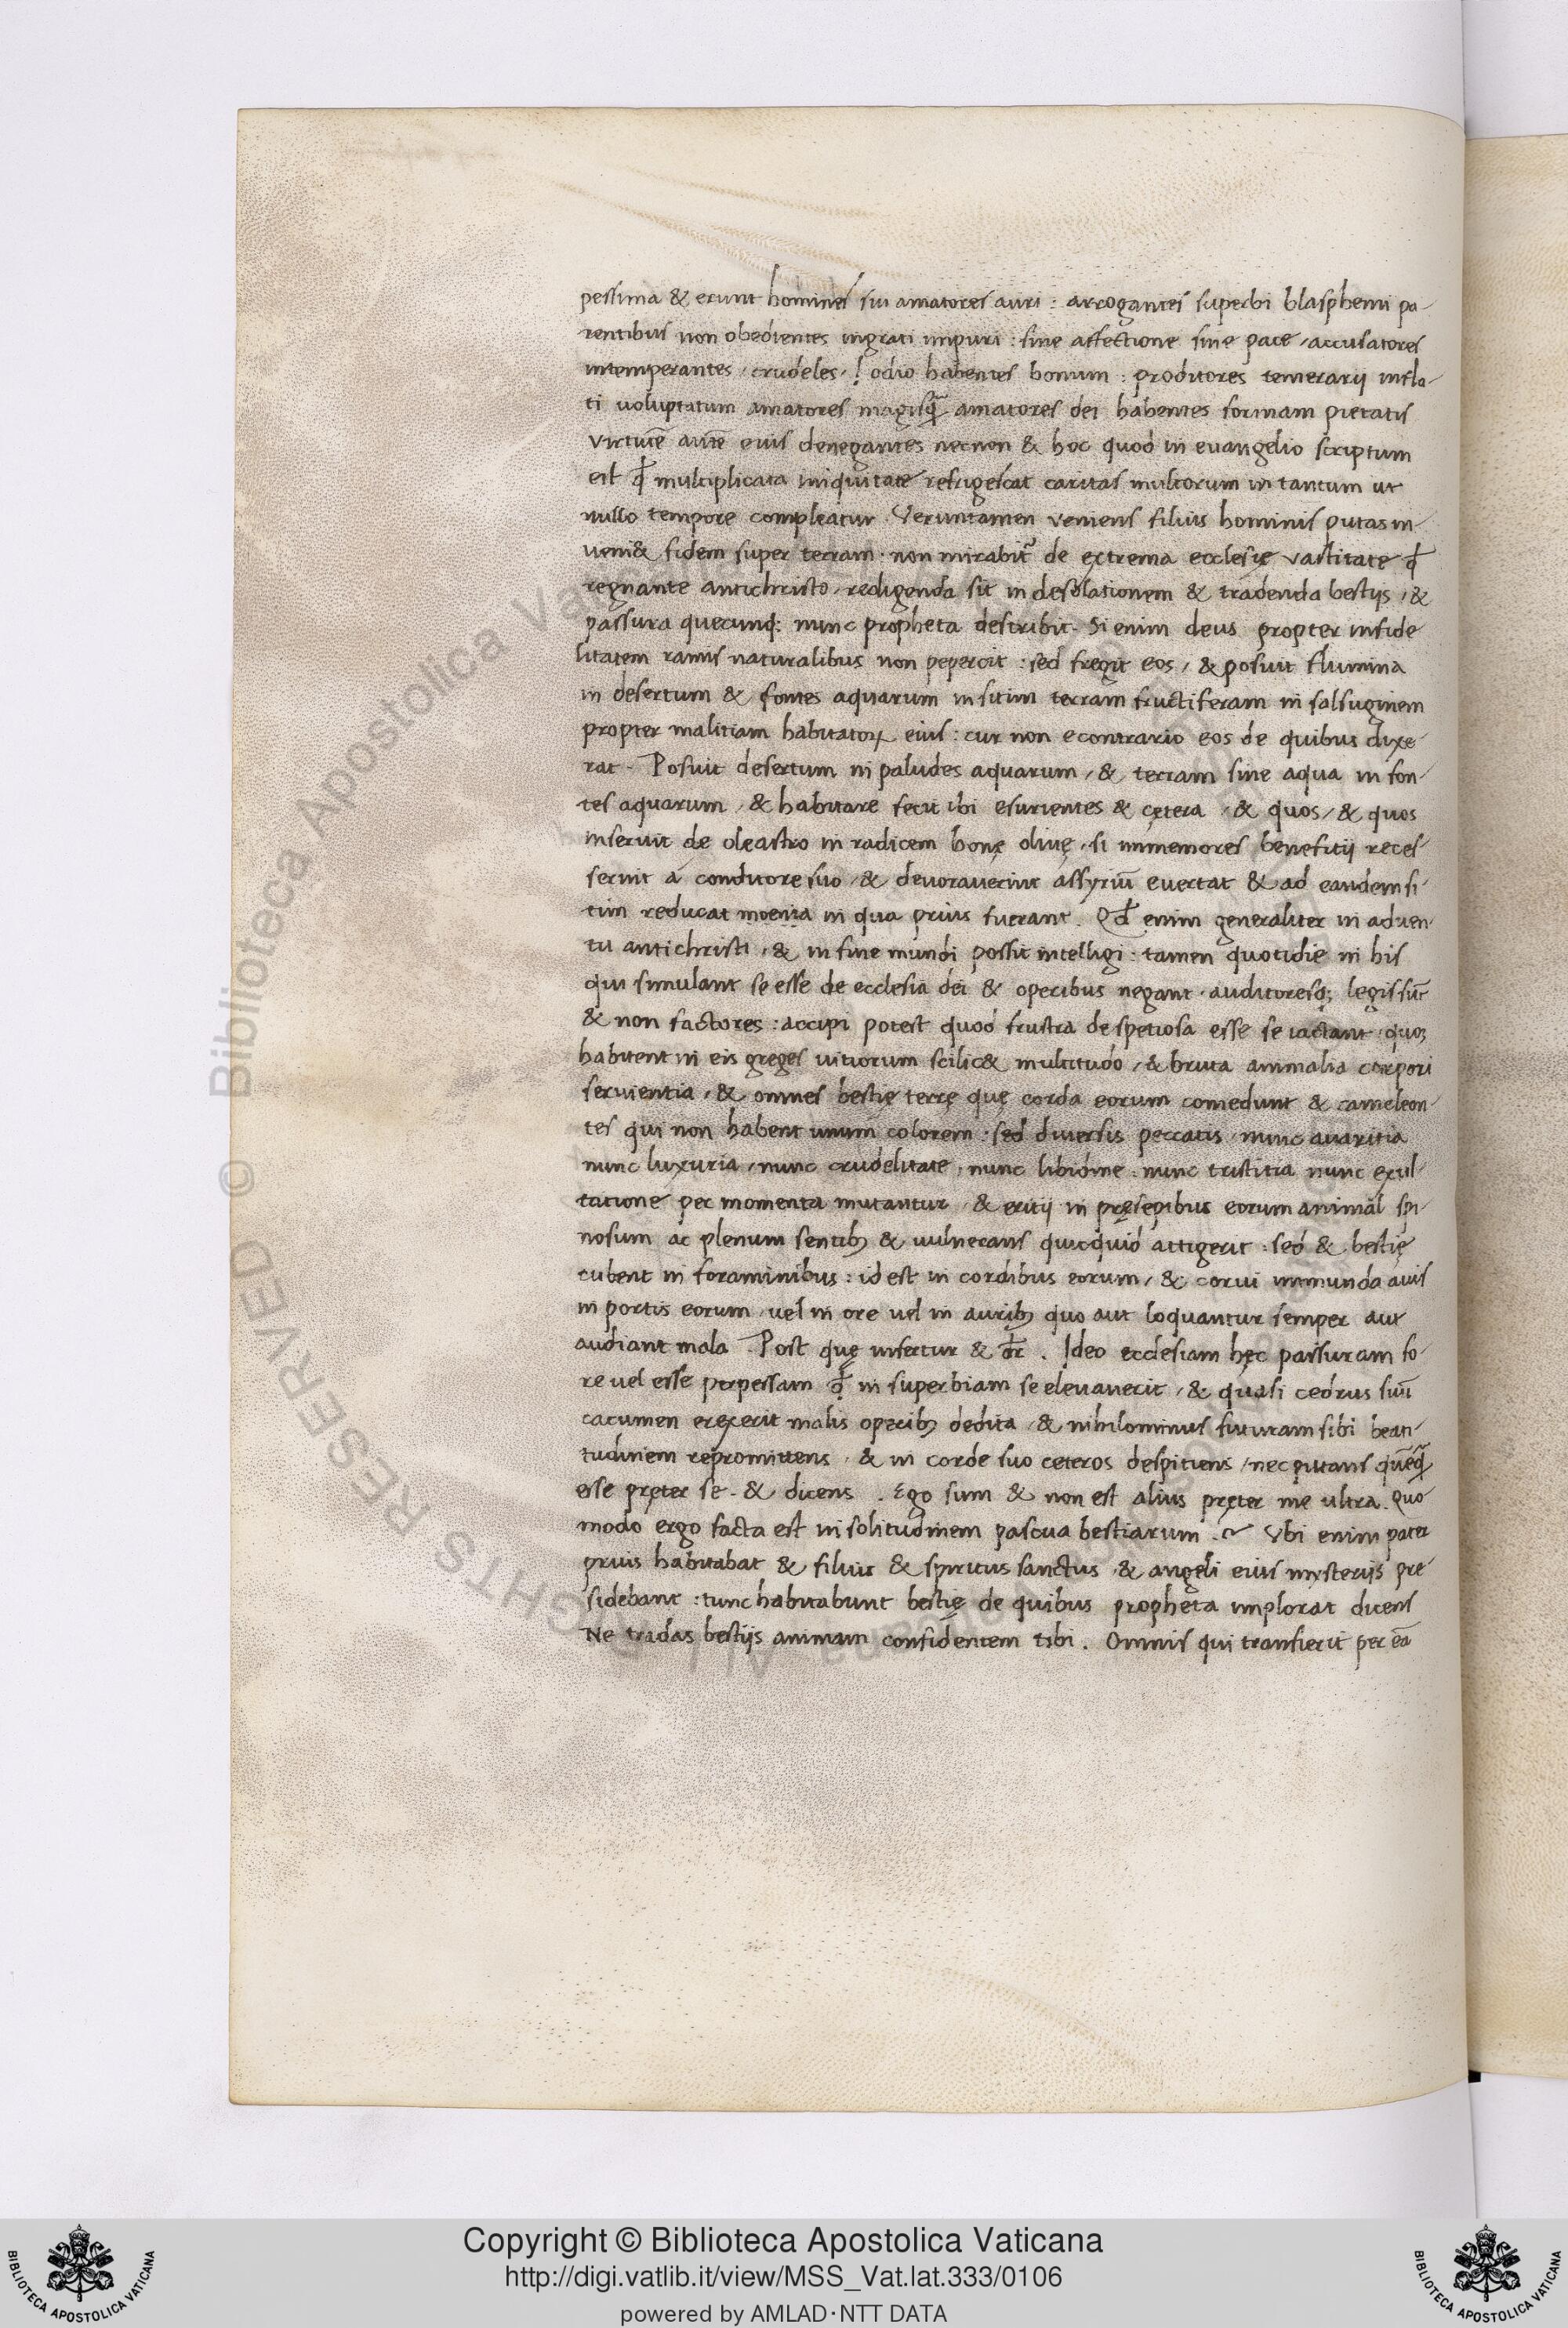 pessima & erunt homines sui amatores auri : arrogantes superbi blasphemi pa-
rentibus non obedientes ingrati impuri : sine affectione sine pace / accusatores
intemperantes / crudeles / ! odio habentes bonum : proditores temerarij infla-
ti voluptatum amatores magisq̃ amatores dei habentes formam pietatis
virtutē autē eius denegantes necnon & hoc quod in euangelio scriptum
est ꝙ multiplicata iniquitate refrigescat caritas multorum in tantum ut
nullo tempore compleatur . Veruntamen veniens filius hominis putas in-
ueni& fidem super terram . non mirabit᷑ de extrema ecclesię vastitate ꝙ
regnante antichristo / redigenda sit in desolationem & tradenda bestijs / &
passura quecunq; nunc propheta describit . Si enim deus propter infide
litatem ramis naturalibus non pepercit : sed fregit eos / & posuit flumina
in desertum & fontes aquarum in sitim terram fructiferam in salsuginem
propter malitiam habitatoꝝ eius : cur non econtrario eos de quibus dixe-
rat - Posuit desertum in paludes aquarum / & terram sine aqua in fon-
tes aquarum / & habitare fecit ibi esurientes & cętera / & quos / & quos
inseruit de oleastro in radicem bonę oliuę / si immemores benefitij reces-
serint a conditore suo / & deuorauerint assyriū euertat & ad eandem si-
tim reducat moenia in qua prius fuerant . Qđ enim generaliter in aduen-
tu antichristi / & in fine mundi possit intelligi : tamen quotidie in his
qui simulant se esse de ecclesia dei & operibus negant . auditoresq; legis sūt
& non factores : accipi potest quod frustra de spetiosa esse se iactant . quoꝫ
habitent in eis greges uitiorum scilic& multitudo / & bruta animalia corpori
seruientia / & omnes bestię terrę quę corda eorum comedunt & cameleon-
tes qui non habent unum colorem : sed diuersis peccatis . nunc auaritia
nunc luxuria / nunc crudelitate / nunc libidine : nunc tristitia nunc exul-
tatione per momenta mutantur / & eritij in pręsepibus eorum animal spi-
nosum ac plenum sentibꝫ & uulnerans quicquid attigerit : sed & bestię
cubent in foraminibus : id est in cordibus eorum / & corui immunda auis
in portis eorum . vel in ore uel in auribꝫ quo aut loquantur semper aut
audiant mala . Post quę infertur & dr̄ . Ideo ecclesiam hęc passuram fo-
re uel esse perpessam ꝙ in superbiam se eleuauerit / & quasi cedrus suū
cacumen erexerit malis operibꝫ dedita / & nihilominus futuram sibi beati-
tudinem repromittens / & in corde suo ceteros despitiens / nec putans quēq̃
esse pręter se - & dicens . Ego sum & non est alius pręter me ultra . Quo-
modo ergo facta est in solitudinem pascua bestiarum . ~ Vbi enim pater
prius habitabat & filius & spiritus sanctus / & angeli eius mysterijs pre-
sidebant : tunc habitabunt bestię de quibus propheta implorat dicens
Ne tradas bestijs animam confidentem tibi . Omnis qui transierit per eā
© Biblioteca Apostolica Vaticana ALL RIGHTS RESERVED
Copyright © Biblioteca Apostolica Vaticana
http://digi.vatlib.it/view/MSS_Vat.lat.333/0106
powered by AMLAD·NTT DATA
BIBLIOTECA APOSTOLICA VATICANA
BIBLIOTECA APOSTOLICA VATICANA